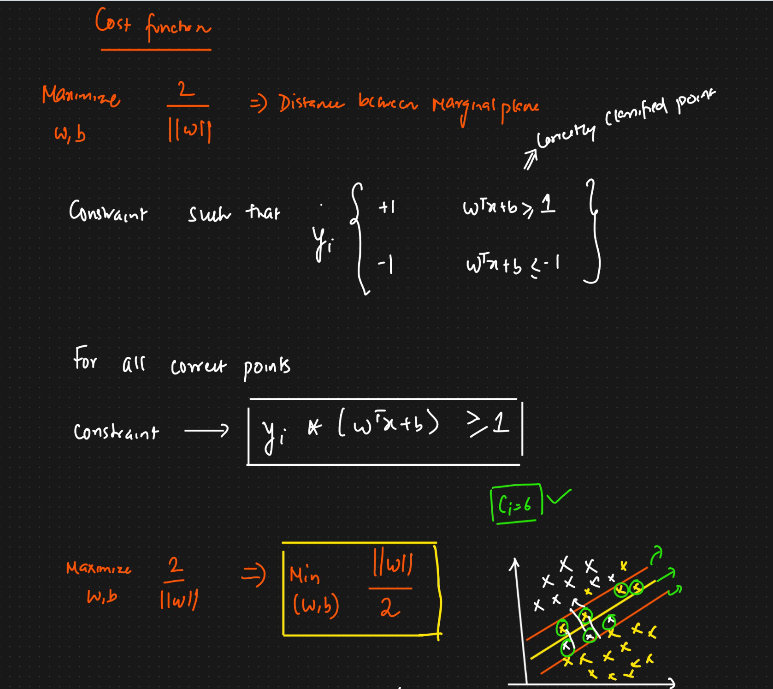 Cost function
Maximize 2/||w|| => Distance between Marginal plane
w,b
=> Correctly classified point
Constraint such that y_i { +1 wᵀx+b ≥ 1
-1 wᵀx+b ≤ -1 }
For all correct points
constraint → y_i * (wᵀx+b) ≥ 1
C_i=6 ✓
Maximize 2/||w|| => Min ||w||/2
w,b (w,b)